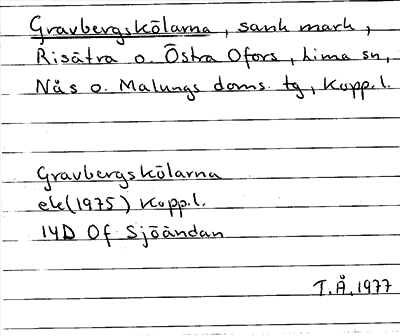 Gravbergskölarna, sank mark,
Risätra o. Östra Ofors, Lima sn,
Nås o. Malungs doms. tg, Kopp. l.
Gravbergskölarna
ek (1975) Kopp. l.
14D 0f Sjöändan
T.Å. 1977